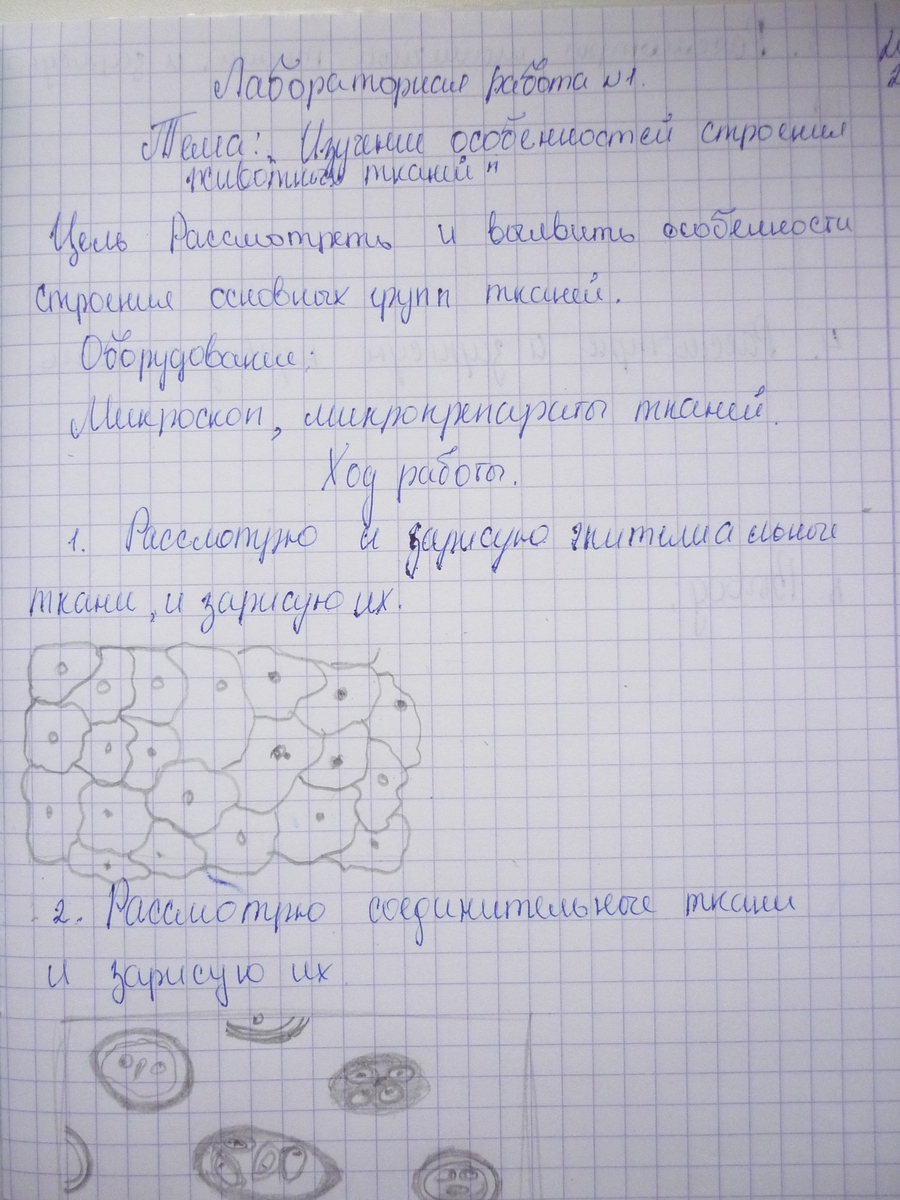 Лабораторная работа №1.
Тема: „Изучение особенностей строения
животных тканей"
Цель Рассмотреть и выявить особенности
строения основных групп тканей.
Оборудование:
Микроскоп, микропрепараты тканей.
Ход работы.
1. Рассмотрю и зарисую эпителиальной
ткани, и зарисую их.
2. Рассмотрю соединительные ткани
и зарисую их